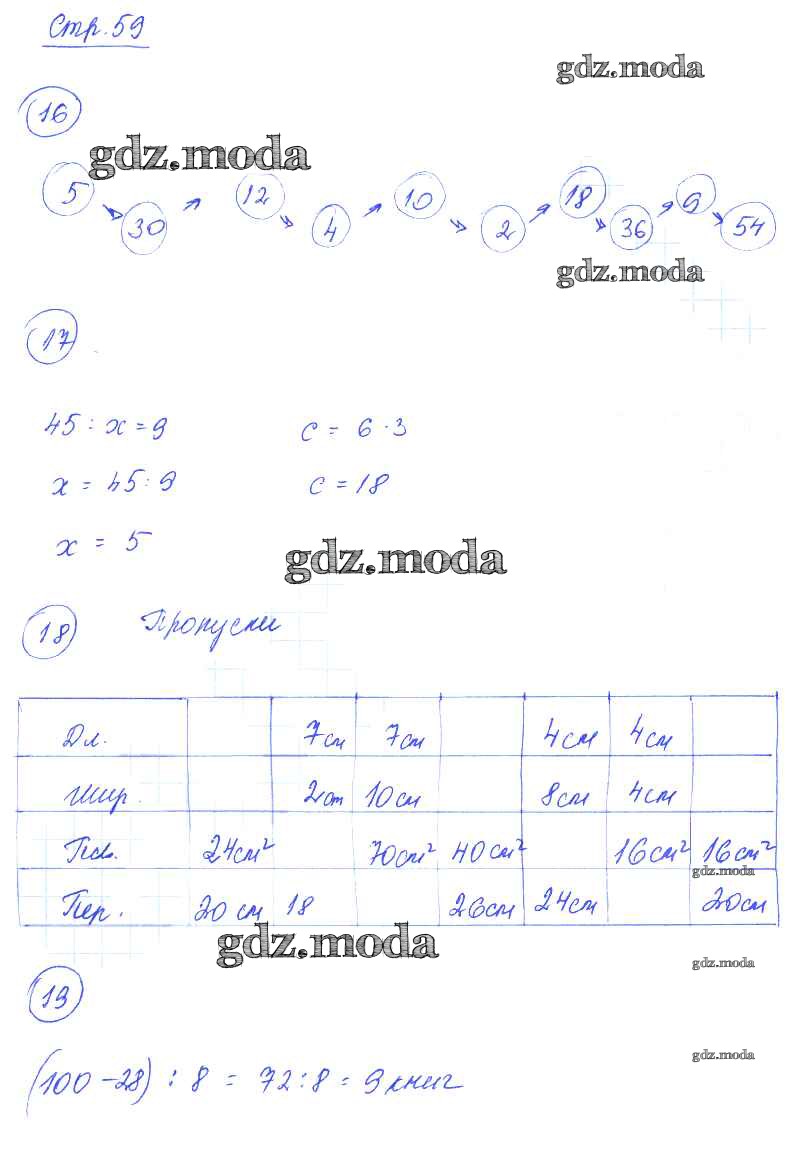 Стр. 59
gdz.moda
16
gdz.moda
5 → 30 → 12 → 4 → 10 → 2 → 18 → 36 → 9 → 54
gdz.moda
17
45 : x = 9 c = 6 · 3
x = 45 : 9 c = 18
x = 5
gdz.moda
18 Пропуски
Дл. 7см 7см 4см 4см
Шир. 2 10см 8см 4см
Пл. 24см² 70см² 40см² 16см² 16см²
gdz.moda
Пер. 20см 18 26см 24см 20см
gdz.moda
gdz.moda
19
gdz.moda
(100 - 28) : 8 = 72 : 8 = 9 книг